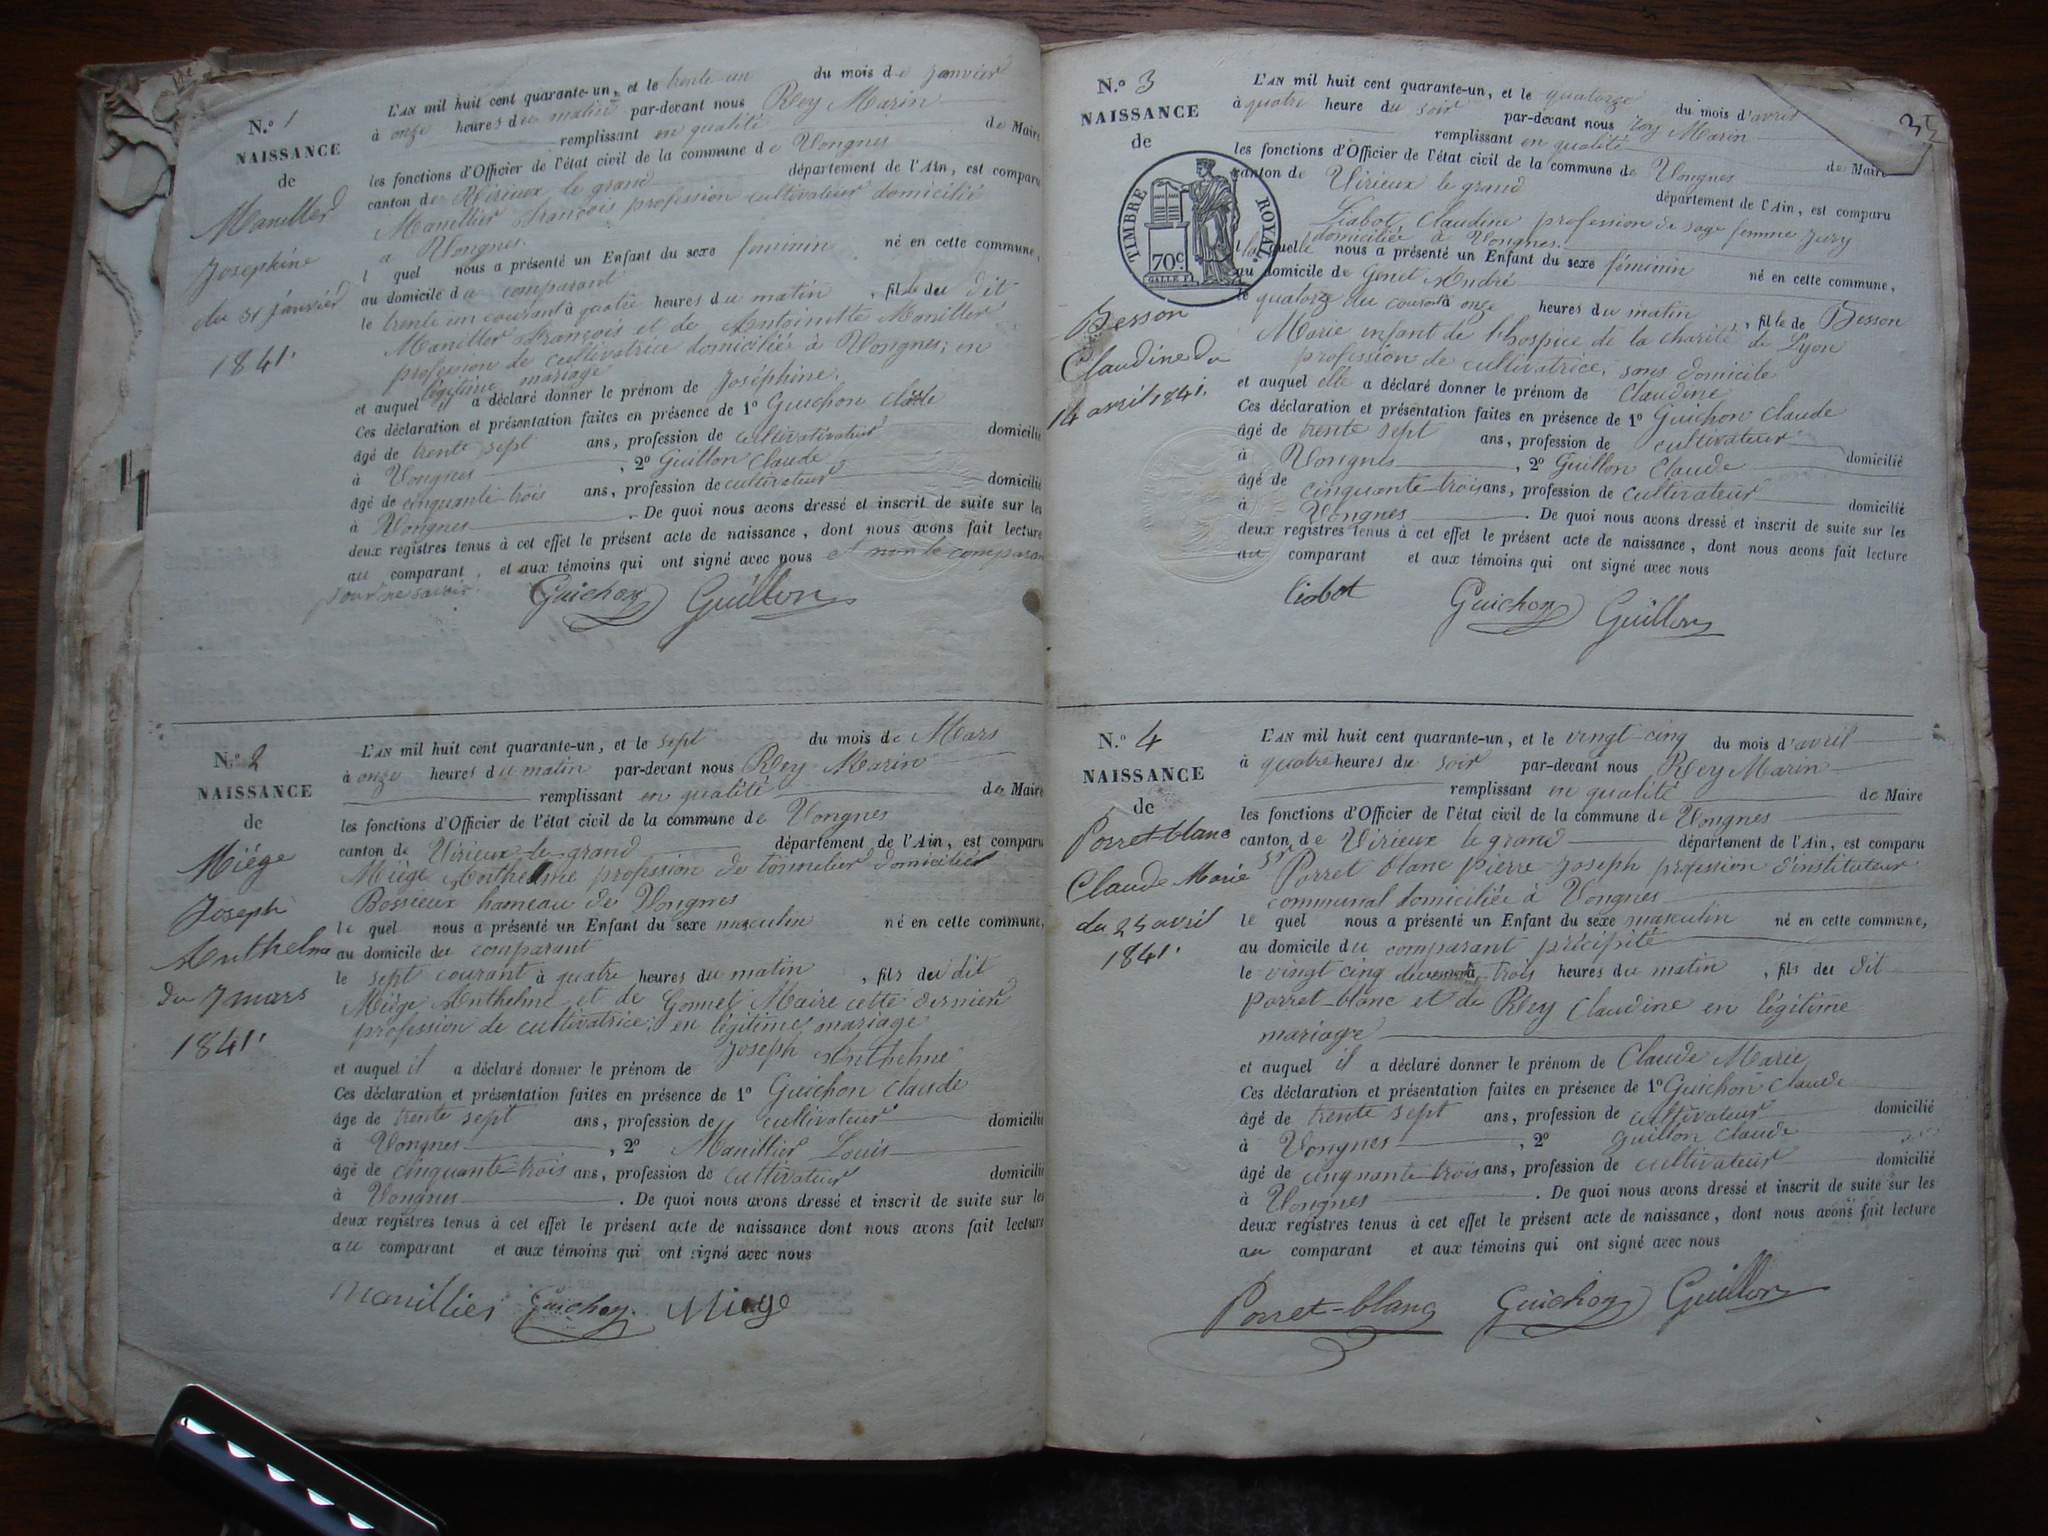 N.º 1
NAISSANCE
de
Manillier
Josephine
du 31 janvier
1841.
L'AN mil huit cent quarante-un, et le trente un du mois de janvier
à onze heures du matin par-devant nous Rey Marin
remplissant en qualité de Maire
les fonctions d'Officier de l'état civil de la commune de Vongnes
canton de Virieux le grand département de l'Ain, est comparu
Manillier François profession cultivateur domicilié
a Vongnes
l quel nous a présenté un Enfant du sexe feminin né en cette commune,
au domicile du comparant
le trente un courant à quatre heures du matin , fille du dit
Maniller François et de Antoinette Maniller
profession de cultivatrice domiciliée à Vongnes; en
légitime mariage
et auquel il a déclaré donner le prénom de Joséphine.
Ces déclaration et présentation faites en présence de 1º Guichon Claude
âgé de trente sept ans, profession de cultivativateur domicilié
à Vongnes , 2º Guillon Claude
âgé de cinquante-trois ans, profession de cultivateur domicilié
à Vongnes . De quoi nous avons dressé et inscrit de suite sur les
deux registres tenus à cet effet le présent acte de naissance, dont nous avons fait lecture
au comparant, et aux témoins qui ont signé avec nous et non le comparan
pour ne savoir.
Guichon Guillon
N.º 2
NAISSANCE
de
Miége
Joseph
Anthelme
du 7 mars
1841.
L'AN mil huit cent quarante-un, et le sept du mois de Mars
à onze heures du matin par-devant nous Rey Marin
remplissant en qualité de Maire
les fonctions d'Officier de l'état civil de la commune de Vongnes
canton de Virieux-le-grand département de l'Ain, est comparu
Miége Anthelme profession de tonnelier domicilié
Bossieux hameau de Vongnes
le quel nous a présenté un Enfant du sexe masculin né en cette commune,
au domicile du comparant
le sept courant à quatre heures du matin , fils du dit
Miége Anthelme et de Gonnet Maire cette derniere
profession de cultivatrice; en légitime mariage
et auquel il a déclaré donner le prénom de Joseph Anthelme
Ces déclaration et présentation faites en présence de 1º Guichon Claude
âgé de trente sept ans, profession de cultivateur domicilié
à Vongnes , 2º Manillier Louis
âgé de cinquante-trois ans, profession de cultivateur domicilié
à Vongnes . De quoi nous avons dressé et inscrit de suite sur les
deux registres tenus à cet effet le présent acte de naissance dont nous avons fait lecture
au comparant et aux témoins qui ont signé avec nous
Manillier Guichon Miege
35
N.º 3
NAISSANCE
de
TIMBRE ROYAL
70c
Besson
Claudine du
14 avril 1841.
L'AN mil huit cent quarante-un, et le quatorze du mois d'avril
à quatre heure du soir par-devant nous rey Marin
remplissant en qualité de Maire
les fonctions d'Officier de l'état civil de la commune de Vongnes
canton de Virieux le grand département de l'Ain, est comparu
Liabot Claudine profession de sage femme jury
domiciliée à Vongnes.
laquelle nous a présenté un Enfant du sexe féminin né en cette commune,
au domicile de Genet André
le quatorze du courant à onze heures du matin , fille de Besson
Marie enfant de l'hospice de la charité de Lyon
profession de cultivatrice, sans domicile
et auquel elle a déclaré donner le prénom de Claudine
Ces déclaration et présentation faites en présence de 1º Guichon Claude
âgé de trente sept ans, profession de cultivateur
à Vongnes , 2º Guillon Claude domicilié
âgé de cinquante-trois ans, profession de cultivateur
à Vongnes . De quoi nous avons dressé et inscrit de suite sur les domicilié
deux registres tenus à cet effet le présent acte de naissance, dont nous avons fait lecture
au comparant et aux témoins qui ont signé avec nous
liabot Guichon Guillon
N.º 4
NAISSANCE
de
Porret-blanc
Claude Marie
du 25 avril
1841.
L'AN mil huit cent quarante-un, et le vingt cinq du mois d'avril
à quatre heures du soir par-devant nous Rey Marin
remplissant en qualité de Maire
les fonctions d'Officier de l'état civil de la commune de Vongnes
canton de Virieux le grand département de l'Ain, est comparu
Sr Porret blanc pierre Joseph profession d'instituteur
communal domiciliée à Vongnes
le quel nous a présenté un Enfant du sexe masculin né en cette commune,
au domicile du comparant précipité
le vingt cinq à trois heures du matin , fils du dit
porret-blanc et de Rey Claudine en légitime
mariage
et auquel il a déclaré donner le prénom de Claude Marie
Ces déclaration et présentation faites en présence de 1º Guichon Claude
âgé de trente sept ans, profession de cultivateur domicilié
à Vongnes , 2º guillon Claude
âgé de cinquante-trois ans, profession de cultivateur domicilié
à Vongnes . De quoi nous avons dressé et inscrit de suite sur les
deux registres tenus à cet effet le présent acte de naissance, dont nous avons fait lecture
au comparant et aux témoins qui ont signé avec nous
Porret-blanc Guichon Guillon